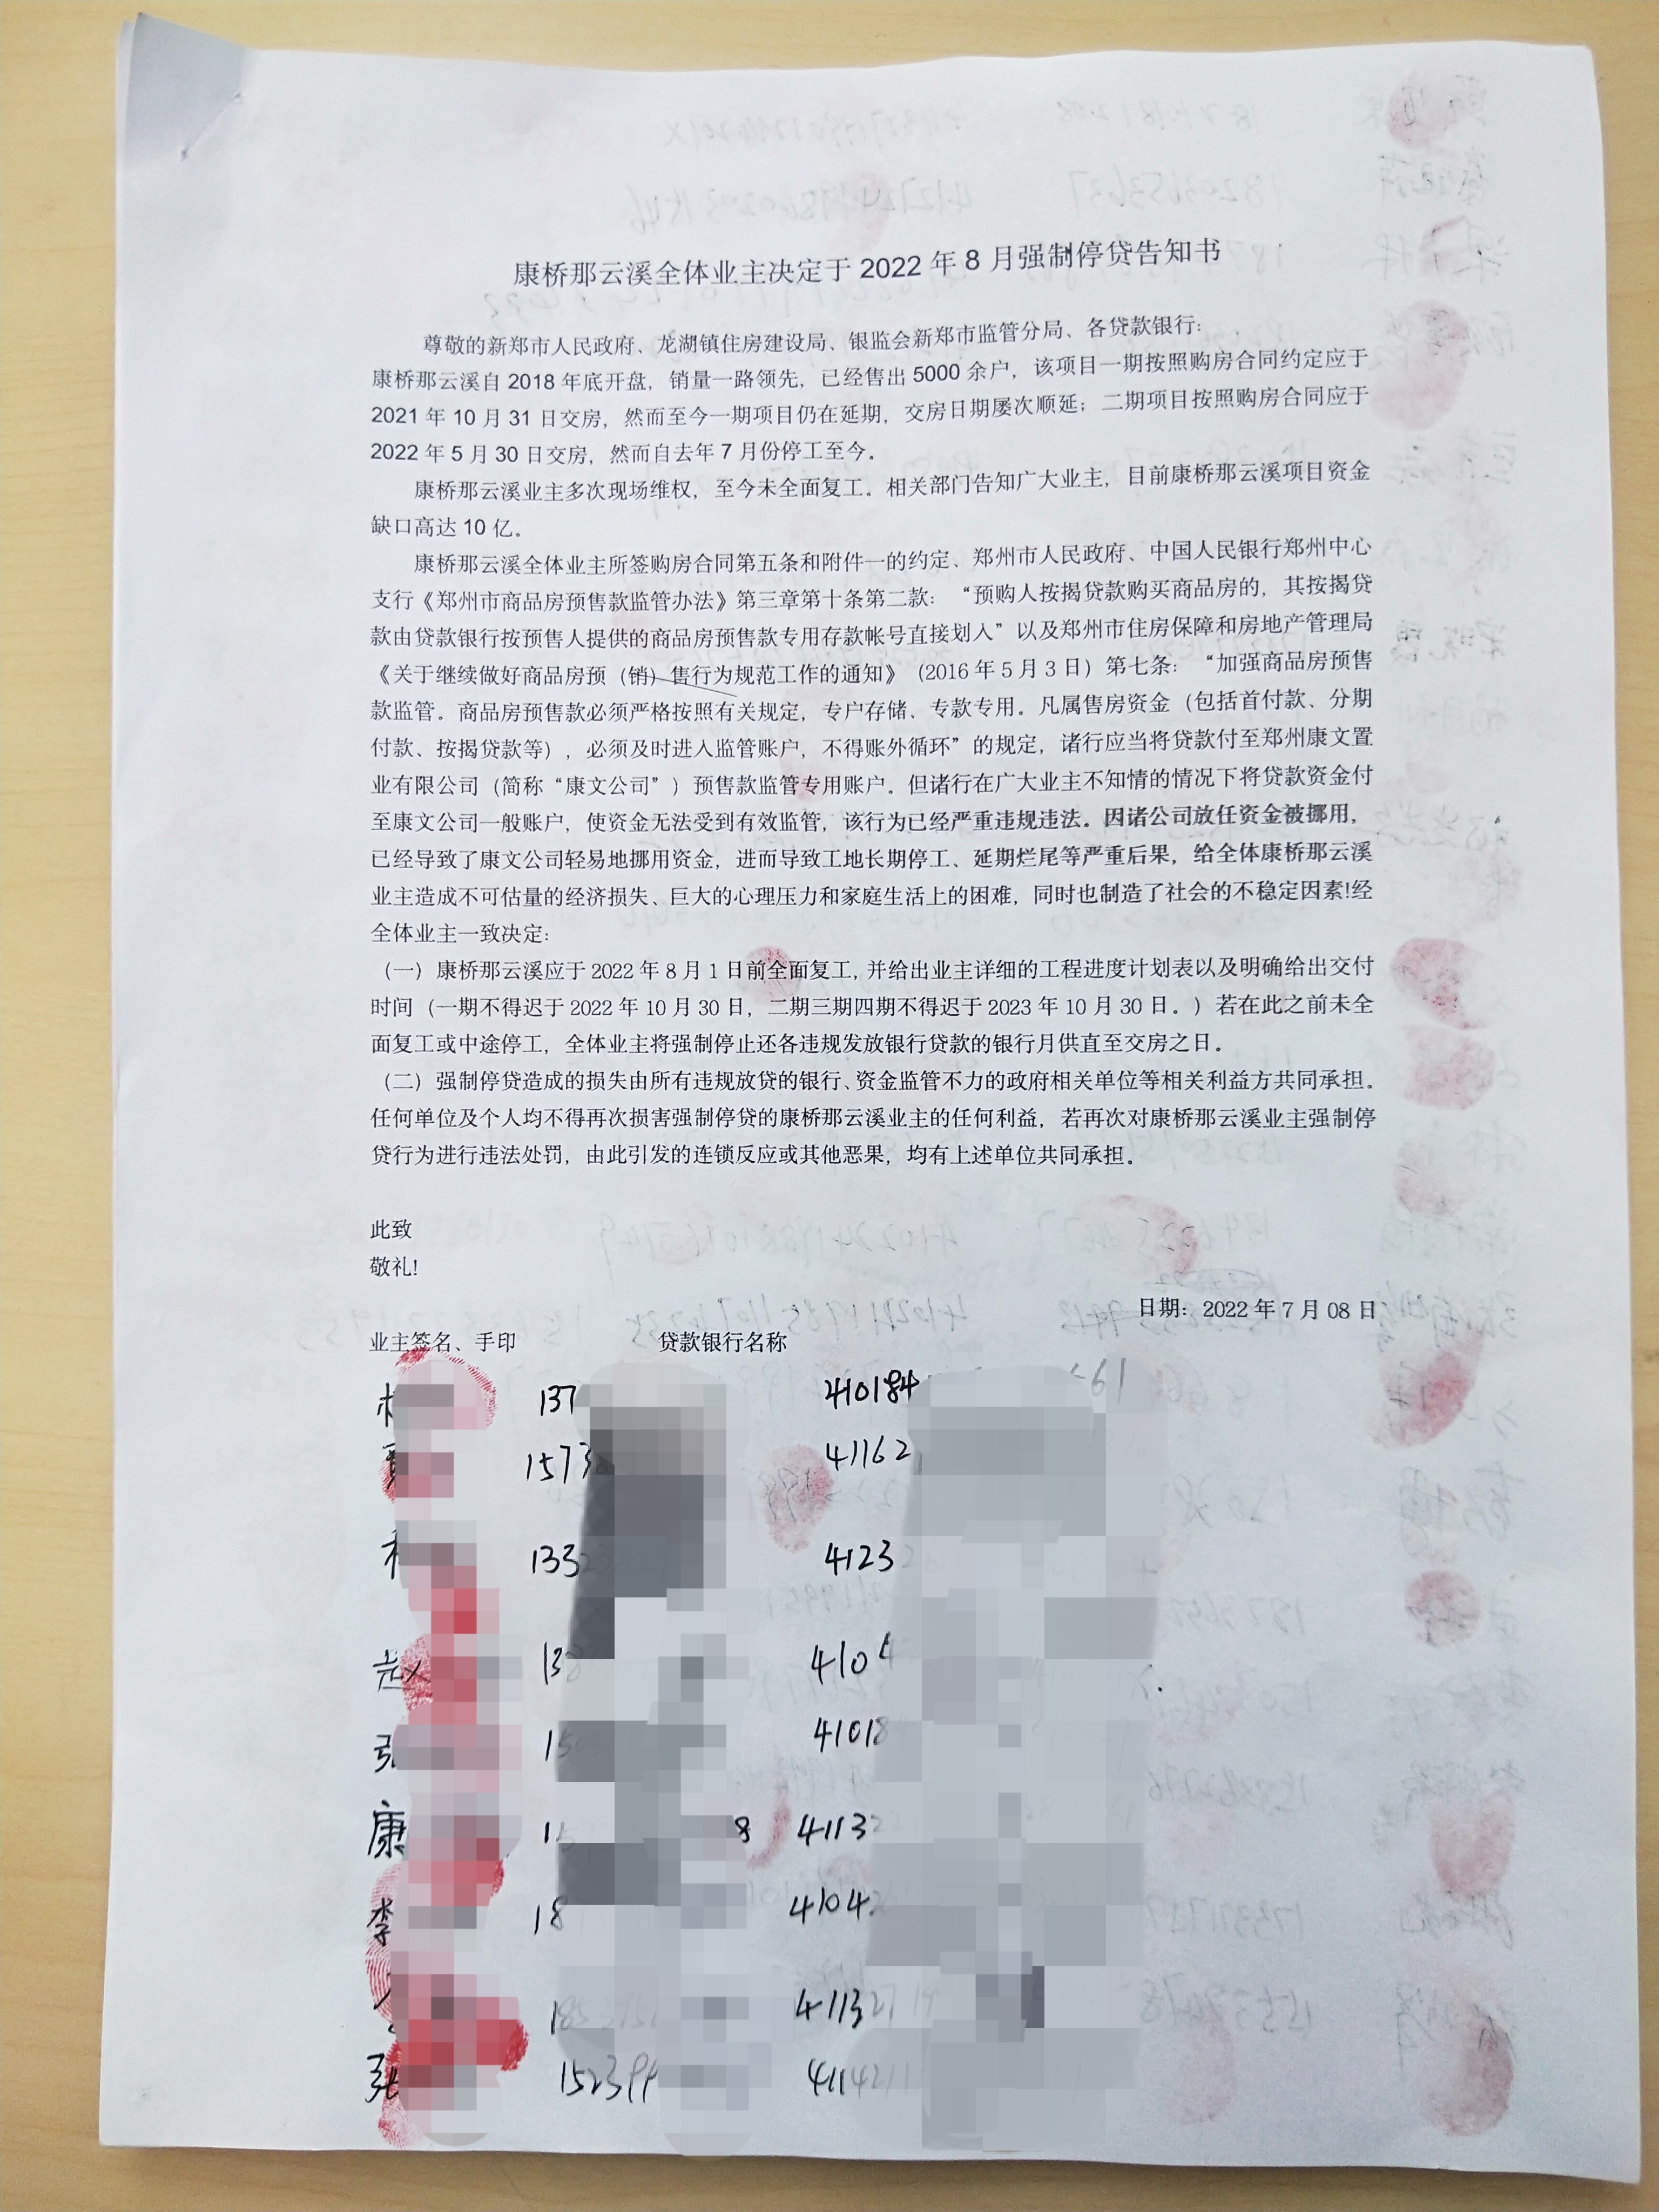 康桥那云溪全体业主决定于 2022 年 8 月强制停贷告知书
尊敬的新郑市人民政府、龙湖镇住房建设局、银监会新郑市监管分局、各贷款银行：
康桥那云溪自 2018 年底开盘，销量一路领先，已经售出 5000 余户，该项目一期按照购房合同约定应于
2021 年 10 月 31 日交房，然而至今一期项目仍在延期，交房日期屡次顺延；二期项目按照购房合同应于
2022 年 5 月 30 日交房，然而自去年 7 月份停工至今。
康桥那云溪业主多次现场维权，至今未全面复工。相关部门告知广大业主，目前康桥那云溪项目资金
缺口高达 10 亿。
康桥那云溪全体业主所签购房合同第五条和附件一的约定、郑州市人民政府、中国人民银行郑州中心
支行《郑州市商品房预售款监管办法》第三章第十条第二款：“预购人按揭贷款购买商品房的，其按揭贷
款由贷款银行按预售人提供的商品房预售款专用存款帐号直接划入”以及郑州市住房保障和房地产管理局
《关于继续做好商品房预（销）售行为规范工作的通知》（2016 年 5 月 3 日）第七条：“加强商品房预售
款监管。商品房预售款必须严格按照有关规定，专户存储、专款专用。凡属售房资金（包括首付款、分期
付款、按揭贷款等），必须及时进入监管账户，不得账外循环”的规定，诸行应当将贷款付至郑州康文置
业有限公司（简称“康文公司”）预售款监管专用账户。但诸行在广大业主不知情的情况下将贷款资金付
至康文公司一般账户，使资金无法受到有效监管，该行为已经严重违规违法。因诸公司放任资金被挪用，
已经导致了康文公司轻易地挪用资金，进而导致工地长期停工、延期烂尾等严重后果，给全体康桥那云溪
业主造成不可估量的经济损失、巨大的心理压力和家庭生活上的困难，同时也制造了社会的不稳定因素!经
全体业主一致决定：
（一）康桥那云溪应于 2022 年 8 月 1 日前全面复工，并给出业主详细的工程进度计划表以及明确给出交付
时间（一期不得迟于 2022 年 10 月 30 日，二期三期四期不得迟于 2023 年 10 月 30 日。）若在此之前未全
面复工或中途停工，全体业主将强制停止还各违规发放银行贷款的银行月供直至交房之日。
（二）强制停贷造成的损失由所有违规放贷的银行、资金监管不力的政府相关单位等相关利益方共同承担。
任何单位及个人均不得再次损害强制停贷的康桥那云溪业主的任何利益，若再次对康桥那云溪业主强制停
贷行为进行违法处罚，由此引发的连锁反应或其他恶果，均有上述单位共同承担。
此致
敬礼!
日期：2022 年 7 月 08 日
业主签名、手印 贷款银行名称
137 410184
1573 41162
133 4123
赵 13 4104
张 15 4101
康 1 8 4113
李 18 4104
185 41132
张 15239 411421